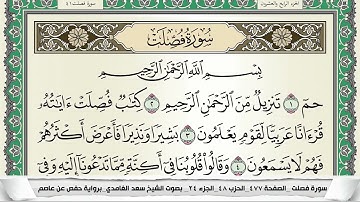 الجزء الرابع والعشرون
سورة فصلت ٤١
سُورَةُ فُصِّلَتْ
بِسْمِ اللَّهِ الرَّحْمَٰنِ الرَّحِيمِ
حمٓ ١ تَنزِيلٌ مِّنَ الرَّحْمَٰنِ الرَّحِيمِ ٢ كِتَٰبٌ فُصِّلَتْ ءَايَٰتُهُۥ
قُرْءَانًا عَرَبِيًّا لِّقَوْمٍ يَعْلَمُونَ ٣ بَشِيرًا وَنَذِيرًا فَأَعْرَضَ أَكْثَرُهُمْ
فَهُمْ لَا يَسْمَعُونَ ٤ وَقَالُوا۟ قُلُوبُنَا فِىٓ أَكِنَّةٍ مِّمَّا تَدْعُونَآ إِلَيْهِ وَفِىٓ
سورة فصلت _ الصفحة ٤٧٧ _ الحزب ٤٨ _ الجزء ٢٤ _ بصوت الشيخ سعد الغامدي _ برواية حفص عن عاصم